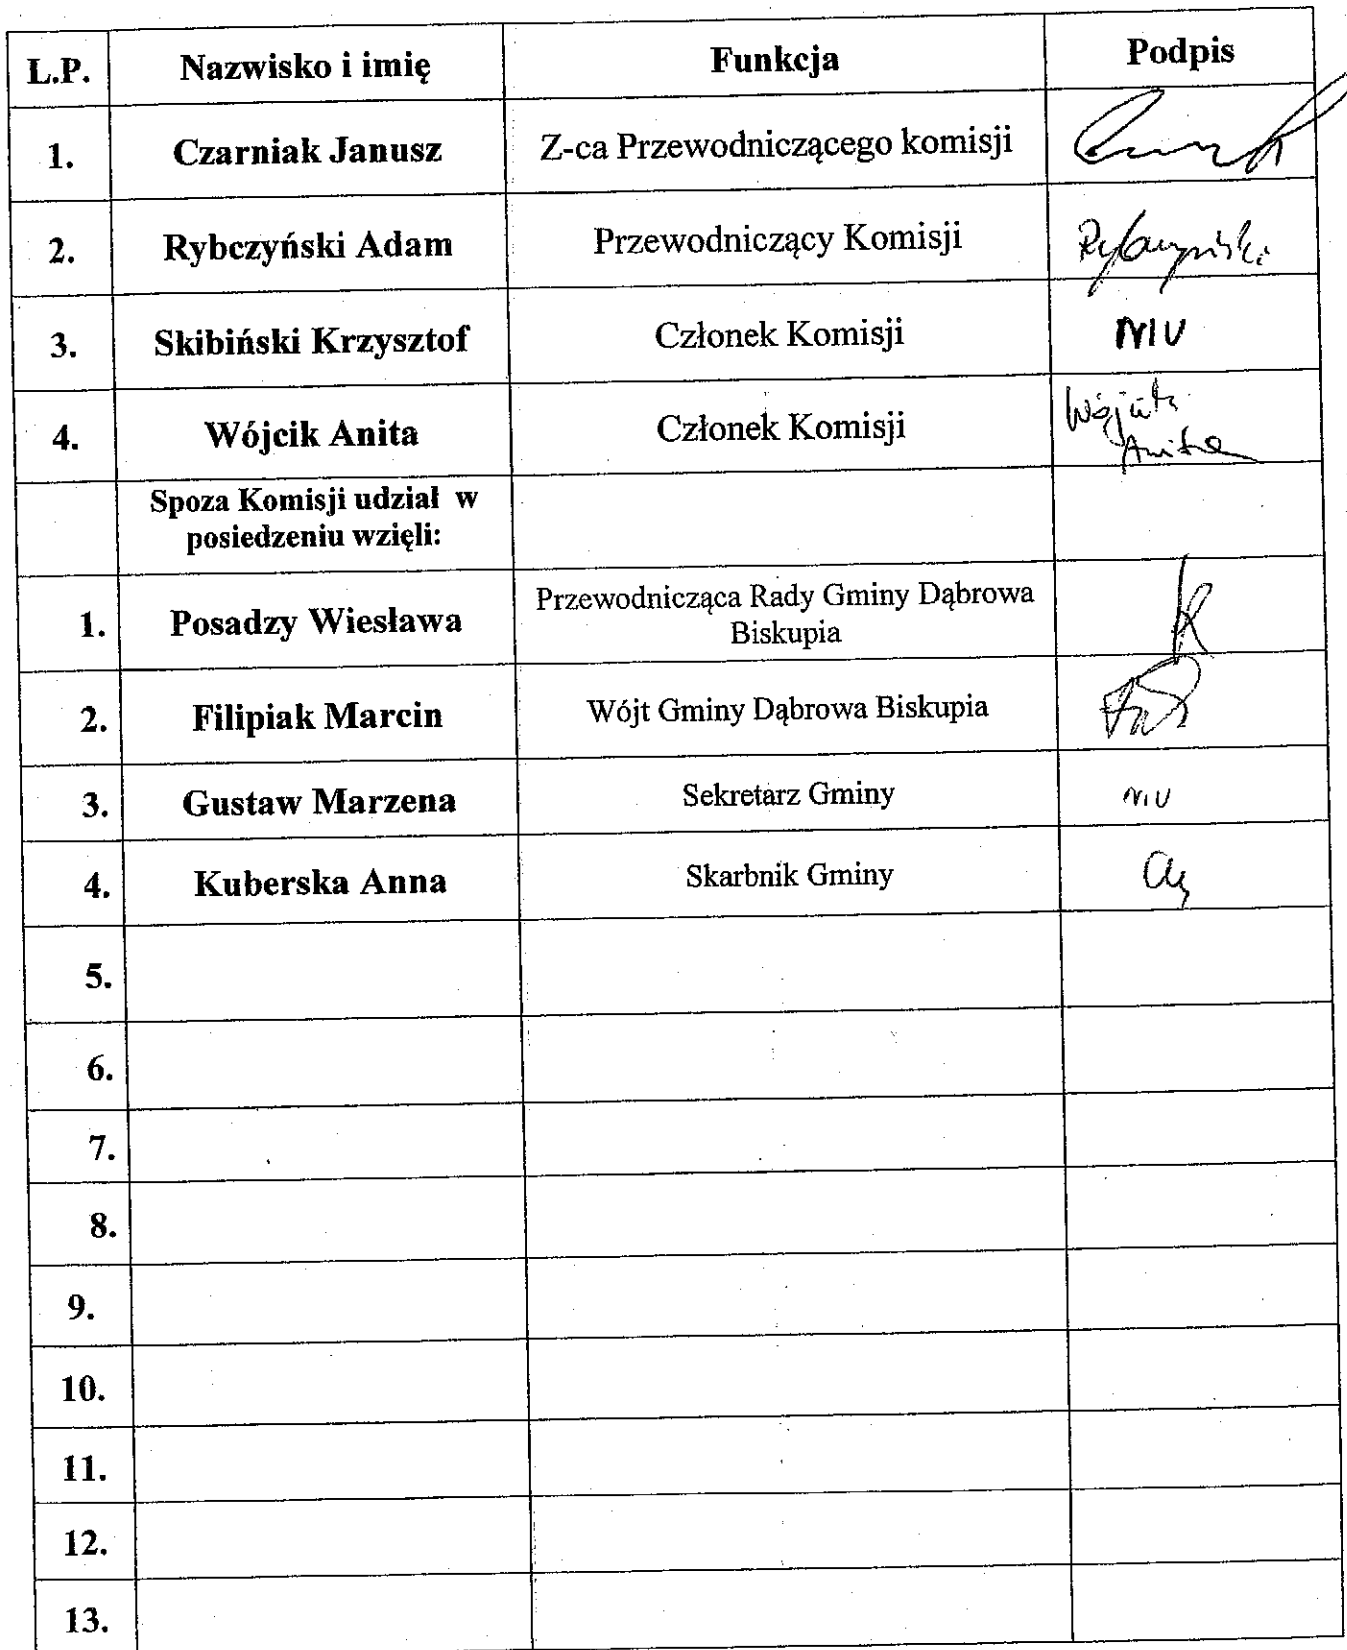 L.P. Nazwisko i imię Funkcja Podpis
1. Czarniak Janusz Z-ca Przewodniczącego komisji
2. Rybczyński Adam Przewodniczący Komisji Rybczyński
3. Skibiński Krzysztof Członek Komisji
4. Wójcik Anita Członek Komisji Wójcik
Anita
Spoza Komisji udział w
posiedzeniu wzięli:
1. Posadzy Wiesława Przewodnicząca Rady Gminy Dąbrowa
Biskupia
2. Filipiak Marcin Wójt Gminy Dąbrowa Biskupia
3. Gustaw Marzena Sekretarz Gminy
4. Kuberska Anna Skarbnik Gminy
5.
6.
7.
8.
9.
10.
11.
12.
13.